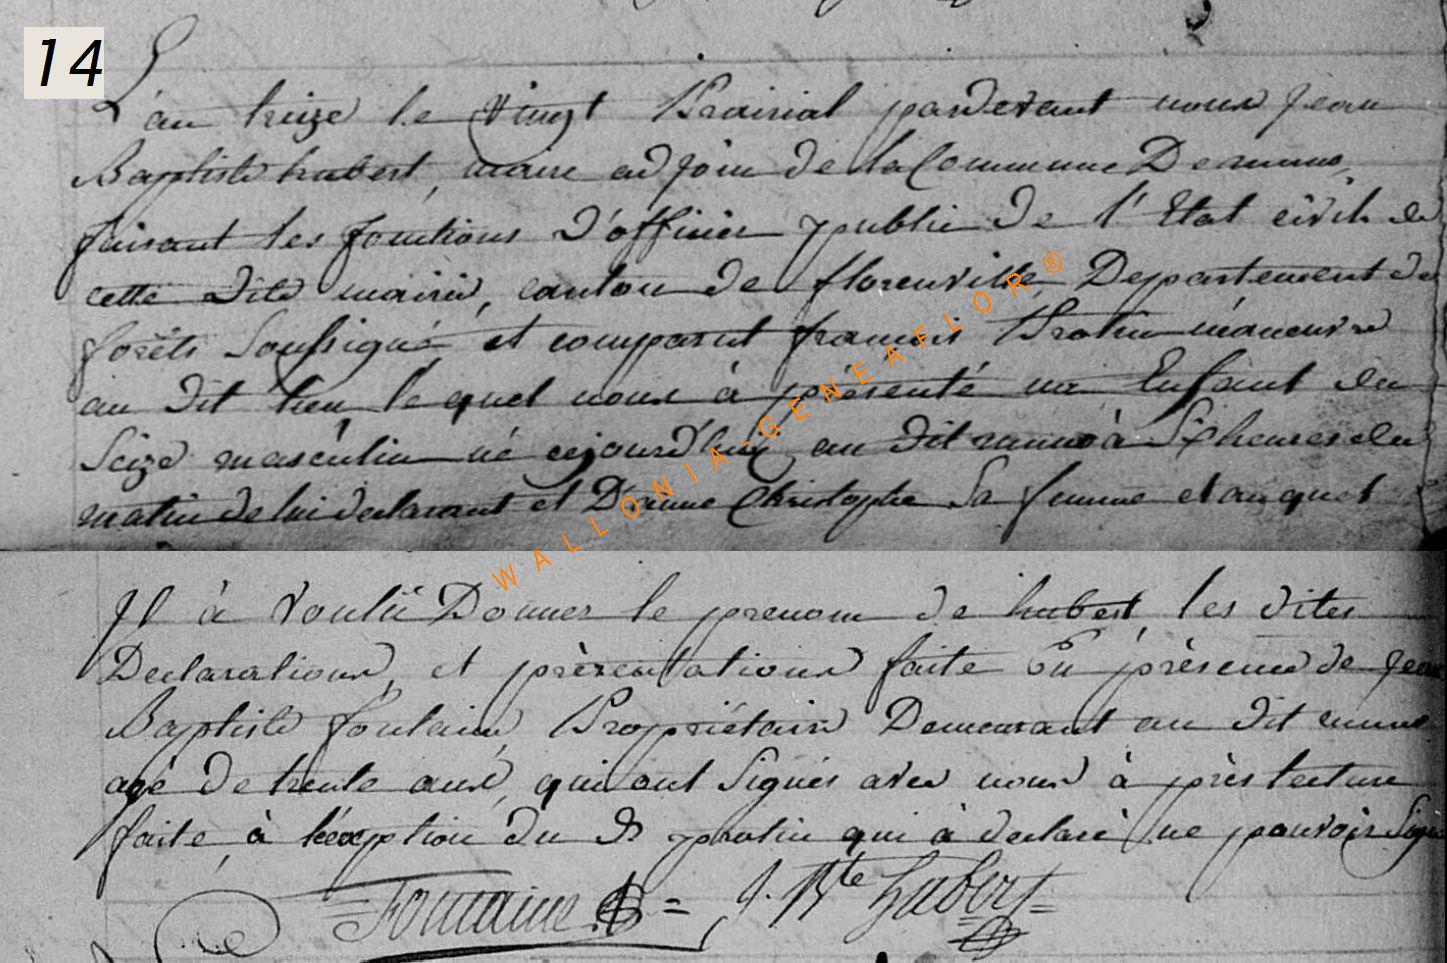 14
L'an treize le vingt Prairial pardevant nous Jean
Baptiste hubert, maire adjoin de la Commune De muno,
faisant les fonctions D'officier public de l'Etat civil de
cette dite mairie, canton de florenville, Departement de
forêts Soussigné et comparut francois Protin manœuvre
au dit lieu le quel nous à présenté un Enfant du
Seize masculin né cejourd'hui au dit muno à Six heures du
matin de lui declarant et D'anne Christophe Sa femme et au quel
Il à voulu Donner le prenom de hubert, les dites
Declarations, et présentations faite En présence de Jean
Baptiste fontaine Propriétaire Demeurant au dit muno
agé de trente ans, qui ont Signés avec nous à près lecture
faite, à l'éxception du dt protin qui à declaré ne pouvoir Signer
Fontaine = J. Bte Hubert =
WALLONIA-GENEAFLOR®